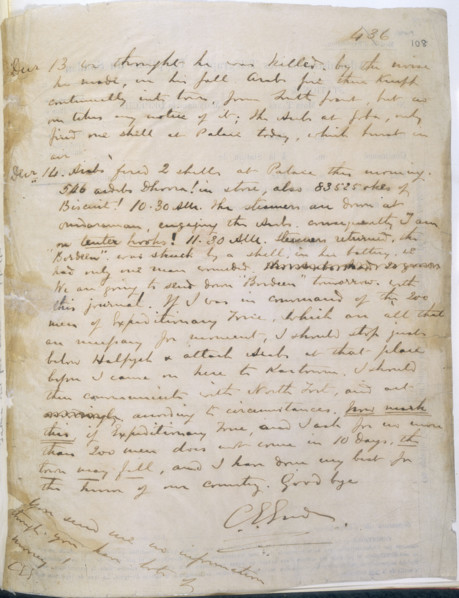 436
108
Decr 13 we thought he was killed, by the noise
he made, in his fall Arabs fire their Krupps
continually into town, from South front, but no
one takes any notice of it, The Arabs at Goba, only
fired one shell at Palace today, which burst in
air
Decr 14. Arabs fired 2 shells at Palace this morning.
546 ardebs Dhoora! in store, also 83525 okes of
Biscuit! 10.30 A.M. The steamers are down at
Omdurman, engaging the Arabs. consequently I am
on tenter hooks! 11.30 A.M. Steamers returned, the
"Bordeen" was struck by a shell, in her battery, we
had only one man wounded.
We are going to send down "Bordeen" tomorrow with
this journal. If I was in command of the 200
men of Expeditionary Force, which are all that
are necessary for moment, I should stop just
below Halfyeh & attack Arabs at that place
before I came on here to Kartoum. I should
then communicate with North Fort, and act
according to circumstances. Now mark
this, if Expeditionary Force, and I ask for no more
than 200 men does not come in 10 days, the
town may fall, and I have done my best for
the honor of our country. Good bye
C. G. Gordon
You send me no information
though you have lots of
money!